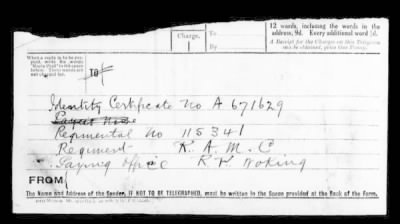 Charge.
12 words, including the words in the
address, 9d. Every additional word 1d.
A Receipt for the Charges on this Telegram
can be obtained, price One Penny.
When a reply is to be pre-
paid, write the words
TO
Identity Certificate No A 671629
Regimental No 115341
Regiment R. A. M. C
Paying Office R. P. Woking
FROM
The Name and Address of the Sender, IF NOT TO BE TELEGRAPHED, must be written in the Space provided at the Back of the Form.